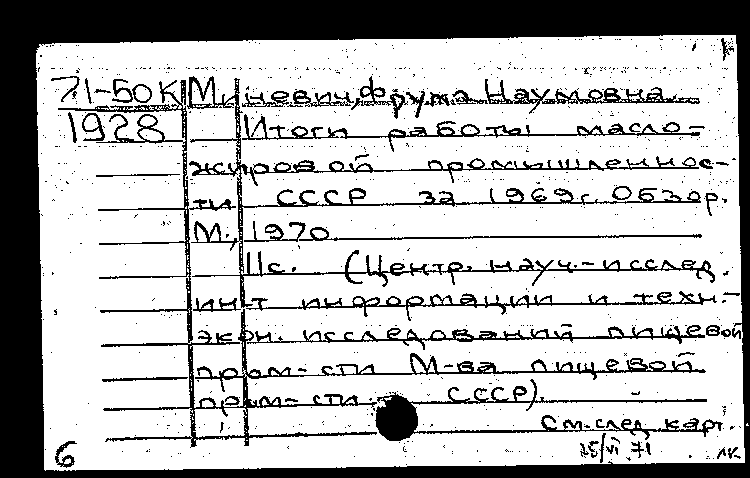 71-50К Миневич, Фрума Наумовна.
1928 Итоги работы масло-
жировой промышленнос-
ти СССР за 1969г. Обзор.
М., 1970.
11с. (Центр. науч.-исслед.
ин-т информации и техн.-
экон. исследований пищевой
пром-сти М-ва пищевой
пром-сти СССР).
См. след. карт.
6 25/VI 71